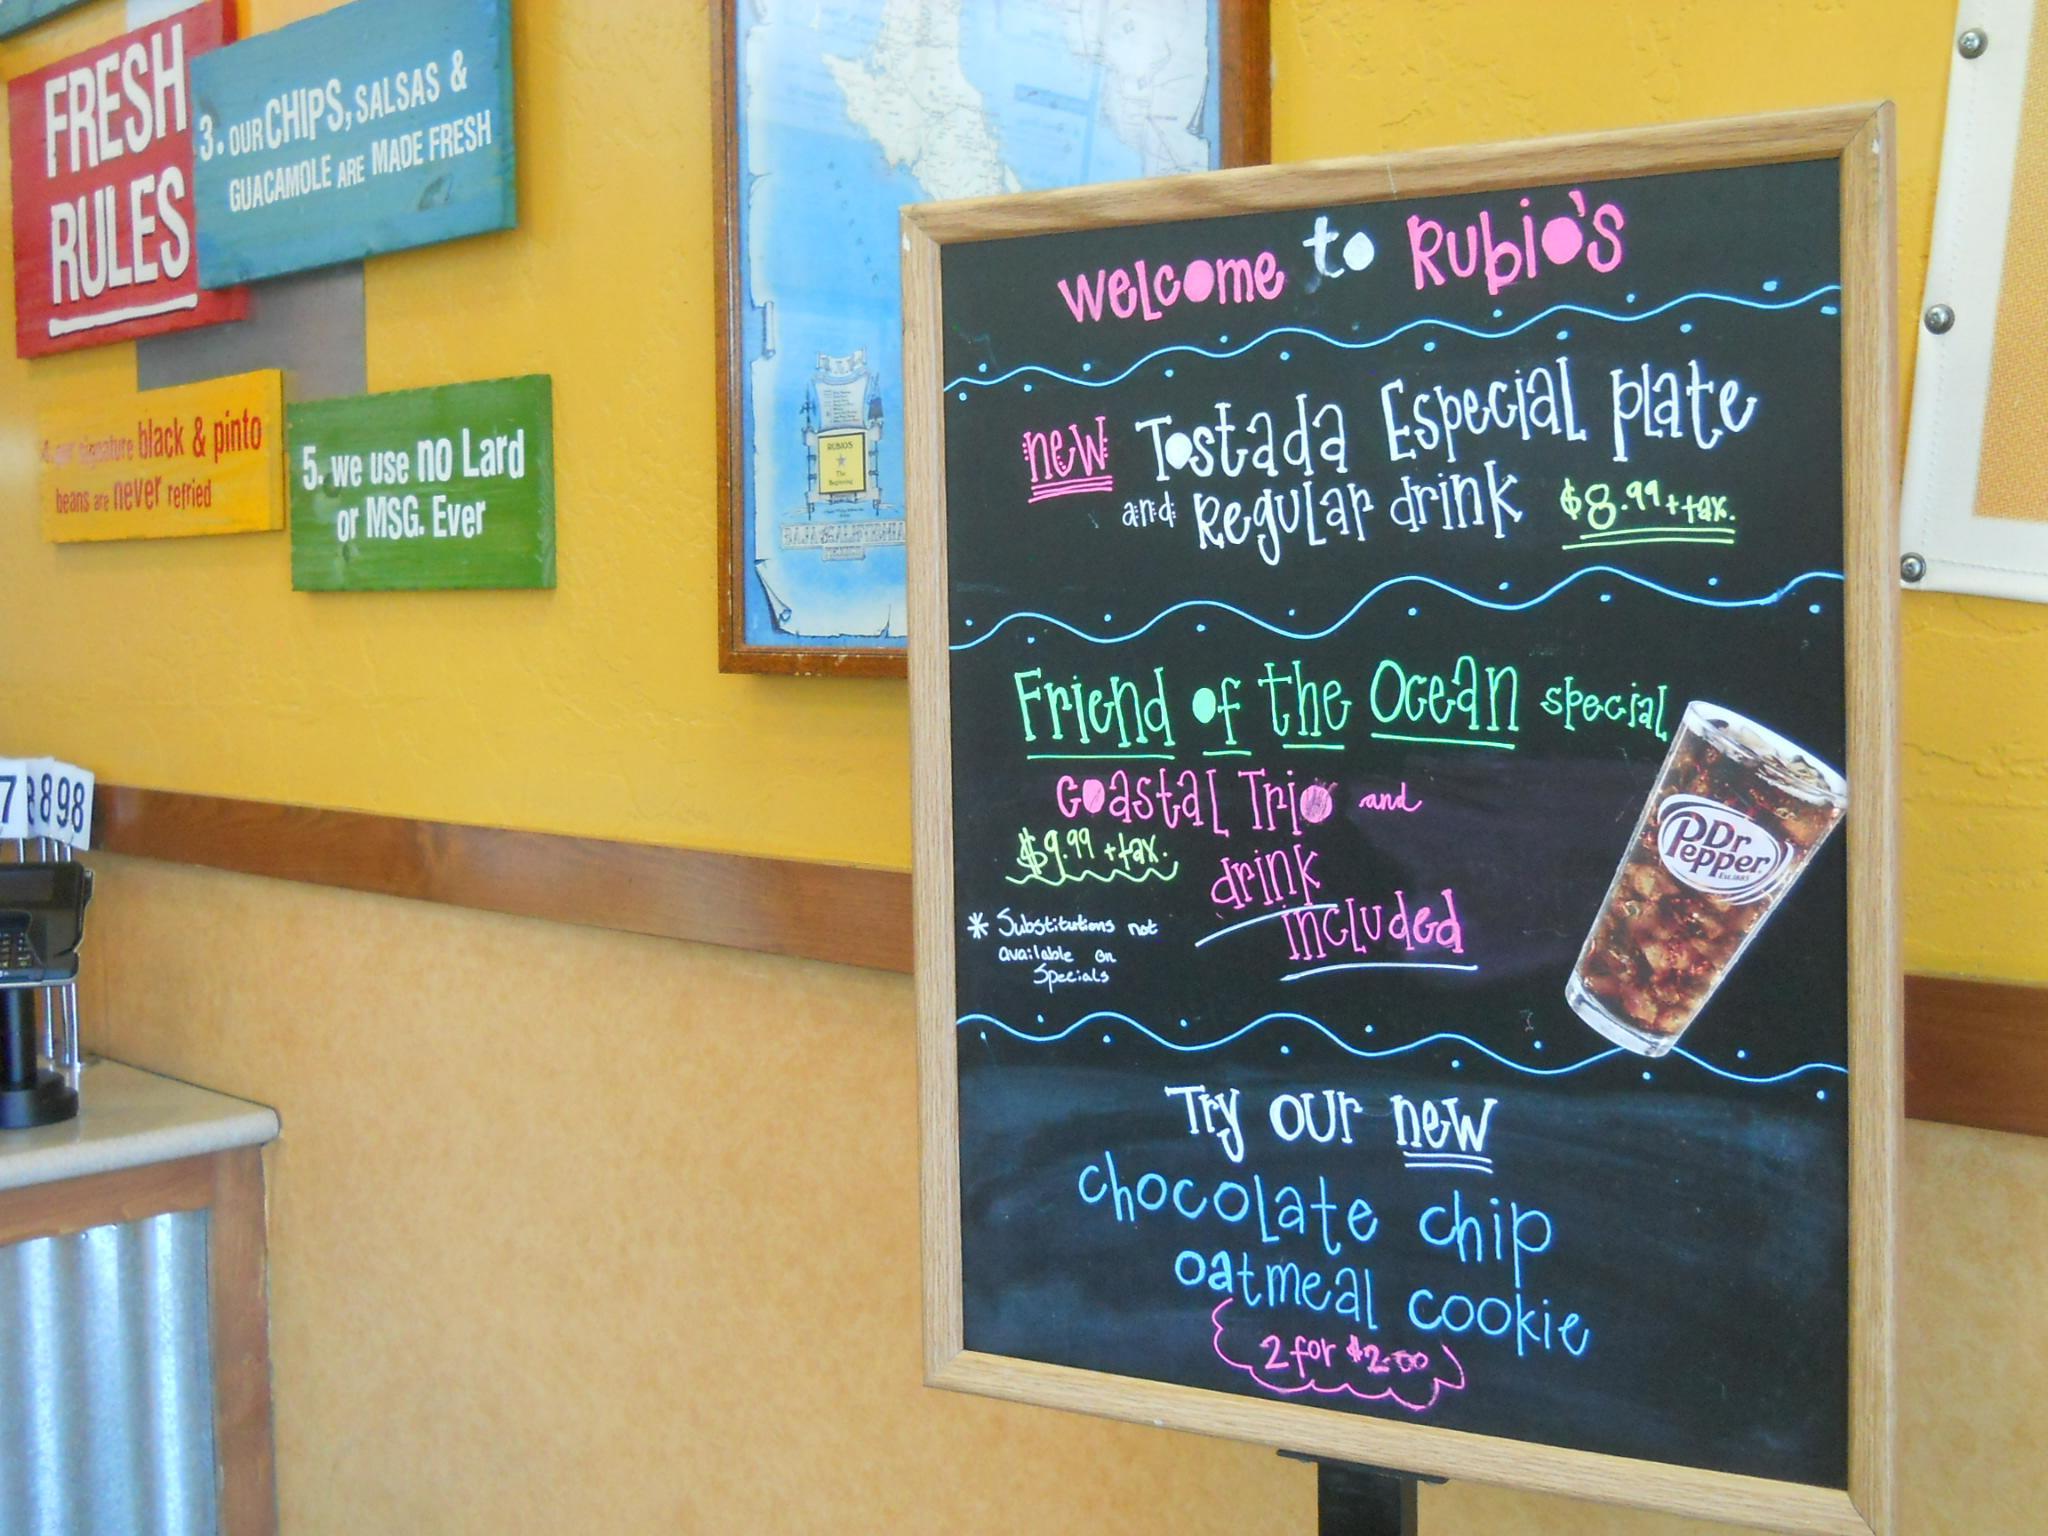 FRESH
RULES
3. OUR CHIPS, SALSAS &
GUACAMOLE ARE MADE FRESH
4. our signature black & pinto
beans are never refried
5. we use no Lard
or MSG. Ever
7 8 8 98
RUBIO'S
The
Beginning
BAJA CALIFORNIA
MEXICO
Welcome to Rubio's
new Tostada Especial plate
and Regular drink $8.99 + tax.
Friend of the Ocean special
Coastal Trio and
$9.99 + tax.
drink
included
* Substitutions not
available on
Specials
Dr
Pepper
Est. 1885
Try our new
chocolate chip
oatmeal cookie
2 for $2.00